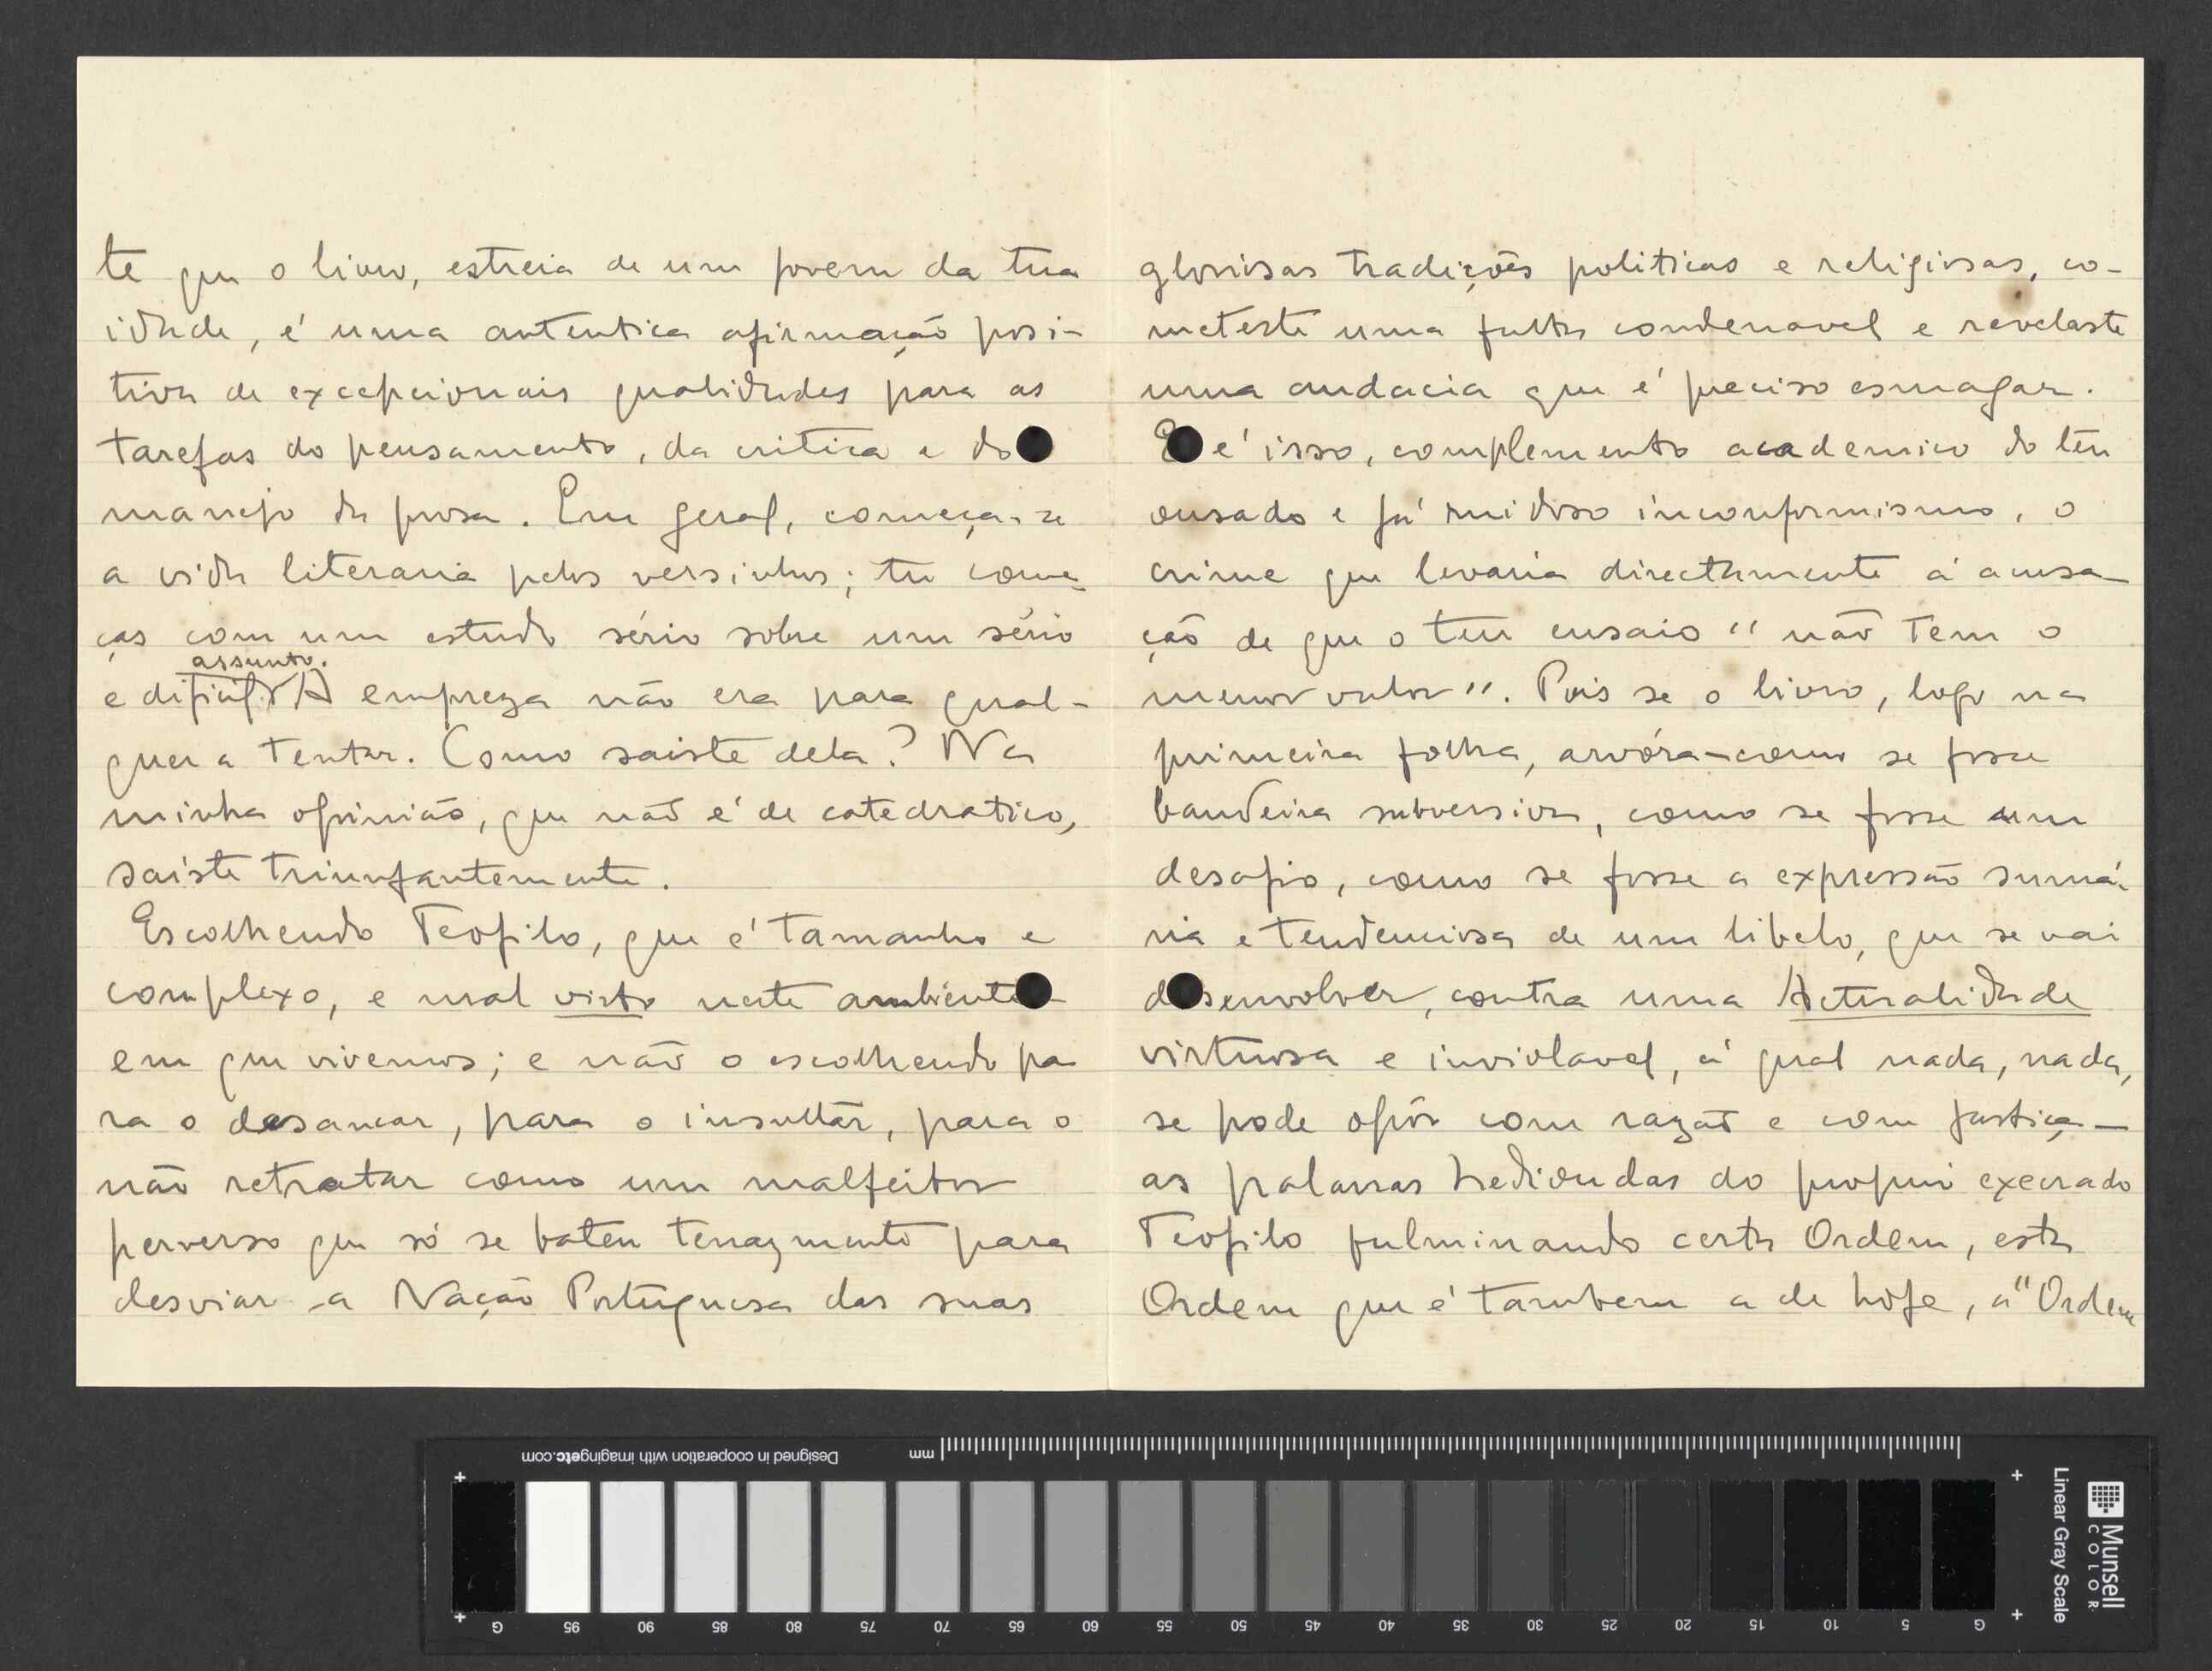 te que o livro, estreia de um jovem da tua
idade, é uma autentica afirmação posi-
tiva de excepcionais qualidades para as
tarefas do pensamento, da critica e do
manejo da prosa. Em geral, começa-se
a vida literaria pelos versinhos; tu come-
ças com um estudo sério sobre um sério
e dificil assunto. A empreza não era para qual-
quer a tentar. Como saiste dela? Na
minha opinião, que não é de catedratico,
saiste triunfantemente.
Escolhendo Teofilo, que é tamanho e
complexo, e mal visto neste ambiente
em que vivemos; e não o escolhendo pa
ra o desancar, para o insultar, para o
não retratar como um malfeitor
perverso que só se bateu tenazmente para
desviar a Nação Portuguesa das suas
gloriosas tradições politicas e religiosas, co-
meteste uma falta condenavel e revelaste
uma audacia que é preciso esmagar.
E é isso, complemento academico do teu
ousado e já ruidoso inconformismo, o
crime que levaria directamente á acusa-
ção de que o teu ensaio "não tem o
menor valor". Pois se o livro, logo na
primeira folha, arvóra - como se fosse
bandeira subversiva, como se fosse um
desafio, como se fosse a expressão sumá-
ria e tendenciosa de um libelo, que se vai
desenvolver, contra uma Actualidade
virtuosa e inviolavel, á qual nada, nada,
se pode opôr com razão e com justiça —
as palavras hediondas do proprio execrado
Teofilo fulminando certa Ordem, esta
Ordem que é tambem a de hoje, a "Ordem
Designed in cooperation with imagingetc.com
mm
G 95 90 85 80 75 70 65 60 55 50 45 40 35 30 25 20 15 10 5 G
Munsell
COLOR
Linear Gray Scale